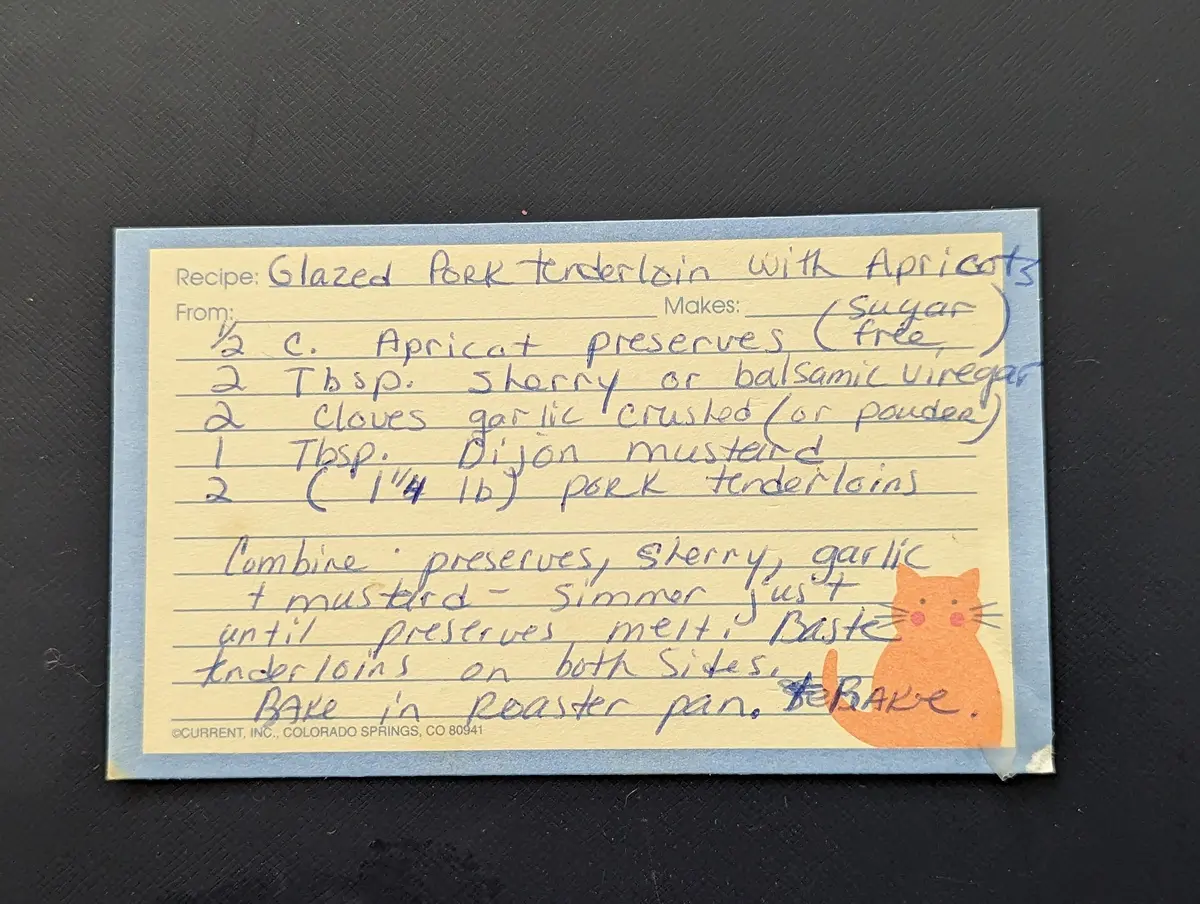 Recipe: Glazed Pork tenderloin with Apricots
From: Makes: (sugar
1/2 c. Apricot preserves free)
2 Tbsp. sherry or balsamic vinegar
2 Cloves garlic crushed (or powder)
1 Tbsp. Dijon mustard
2 (1 1/4 lb) pork tenderloins
Combine preserves, sherry, garlic
+ mustard - simmer just
until preserves melt. Baste
tenderloins on both sides.
BAKE in Roaster pan. BAKE.
©CURRENT, INC., COLORADO SPRINGS, CO 80941